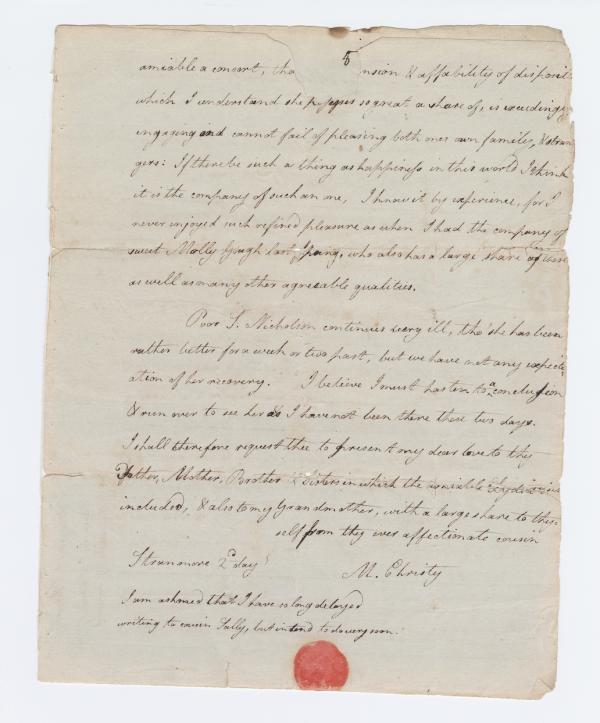 5
amiable a consort, tho nsion & affability of disposit
which I understand she possesses so great a share of, is exceedingly
ingaging and cannot fail of pleasing both ones own family, & stran
gers: If there be such a thing as happiness in this world I think
it is the company of such an one, I know it by experience, for I
never enjoyed such refined pleasure as when I had the company of
sweet Molly Gough last Spring, who also has a large share of these
as well as many other agreeable qualities.
Poor S. Nicholson continues very ill, tho' she has been
rather better for a week or two past, but we have not any expect-
ation of her recovery. I believe I must hasten to a conclusion
& run over to see her as I have not been there these two days.
I shall therefore request thee to present my dear love to thy
Father, Mother, Brother & Sisters in which the amiable Lydia is
included, & also to my Grandmother, with a large share to thee
self from thy ever affectionate cousin
Stranmore 2d day
M. Christy
I am ashmed that I have so long delayed
writing to cousin Sally, but intend to do very soon.